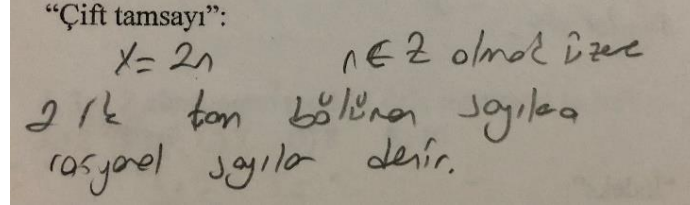 “Çift tamsayı”:
x = 2n n ∈ Z olmak üzere
2 ile tam bölünen sayılara
rasyonel sayılar denir.